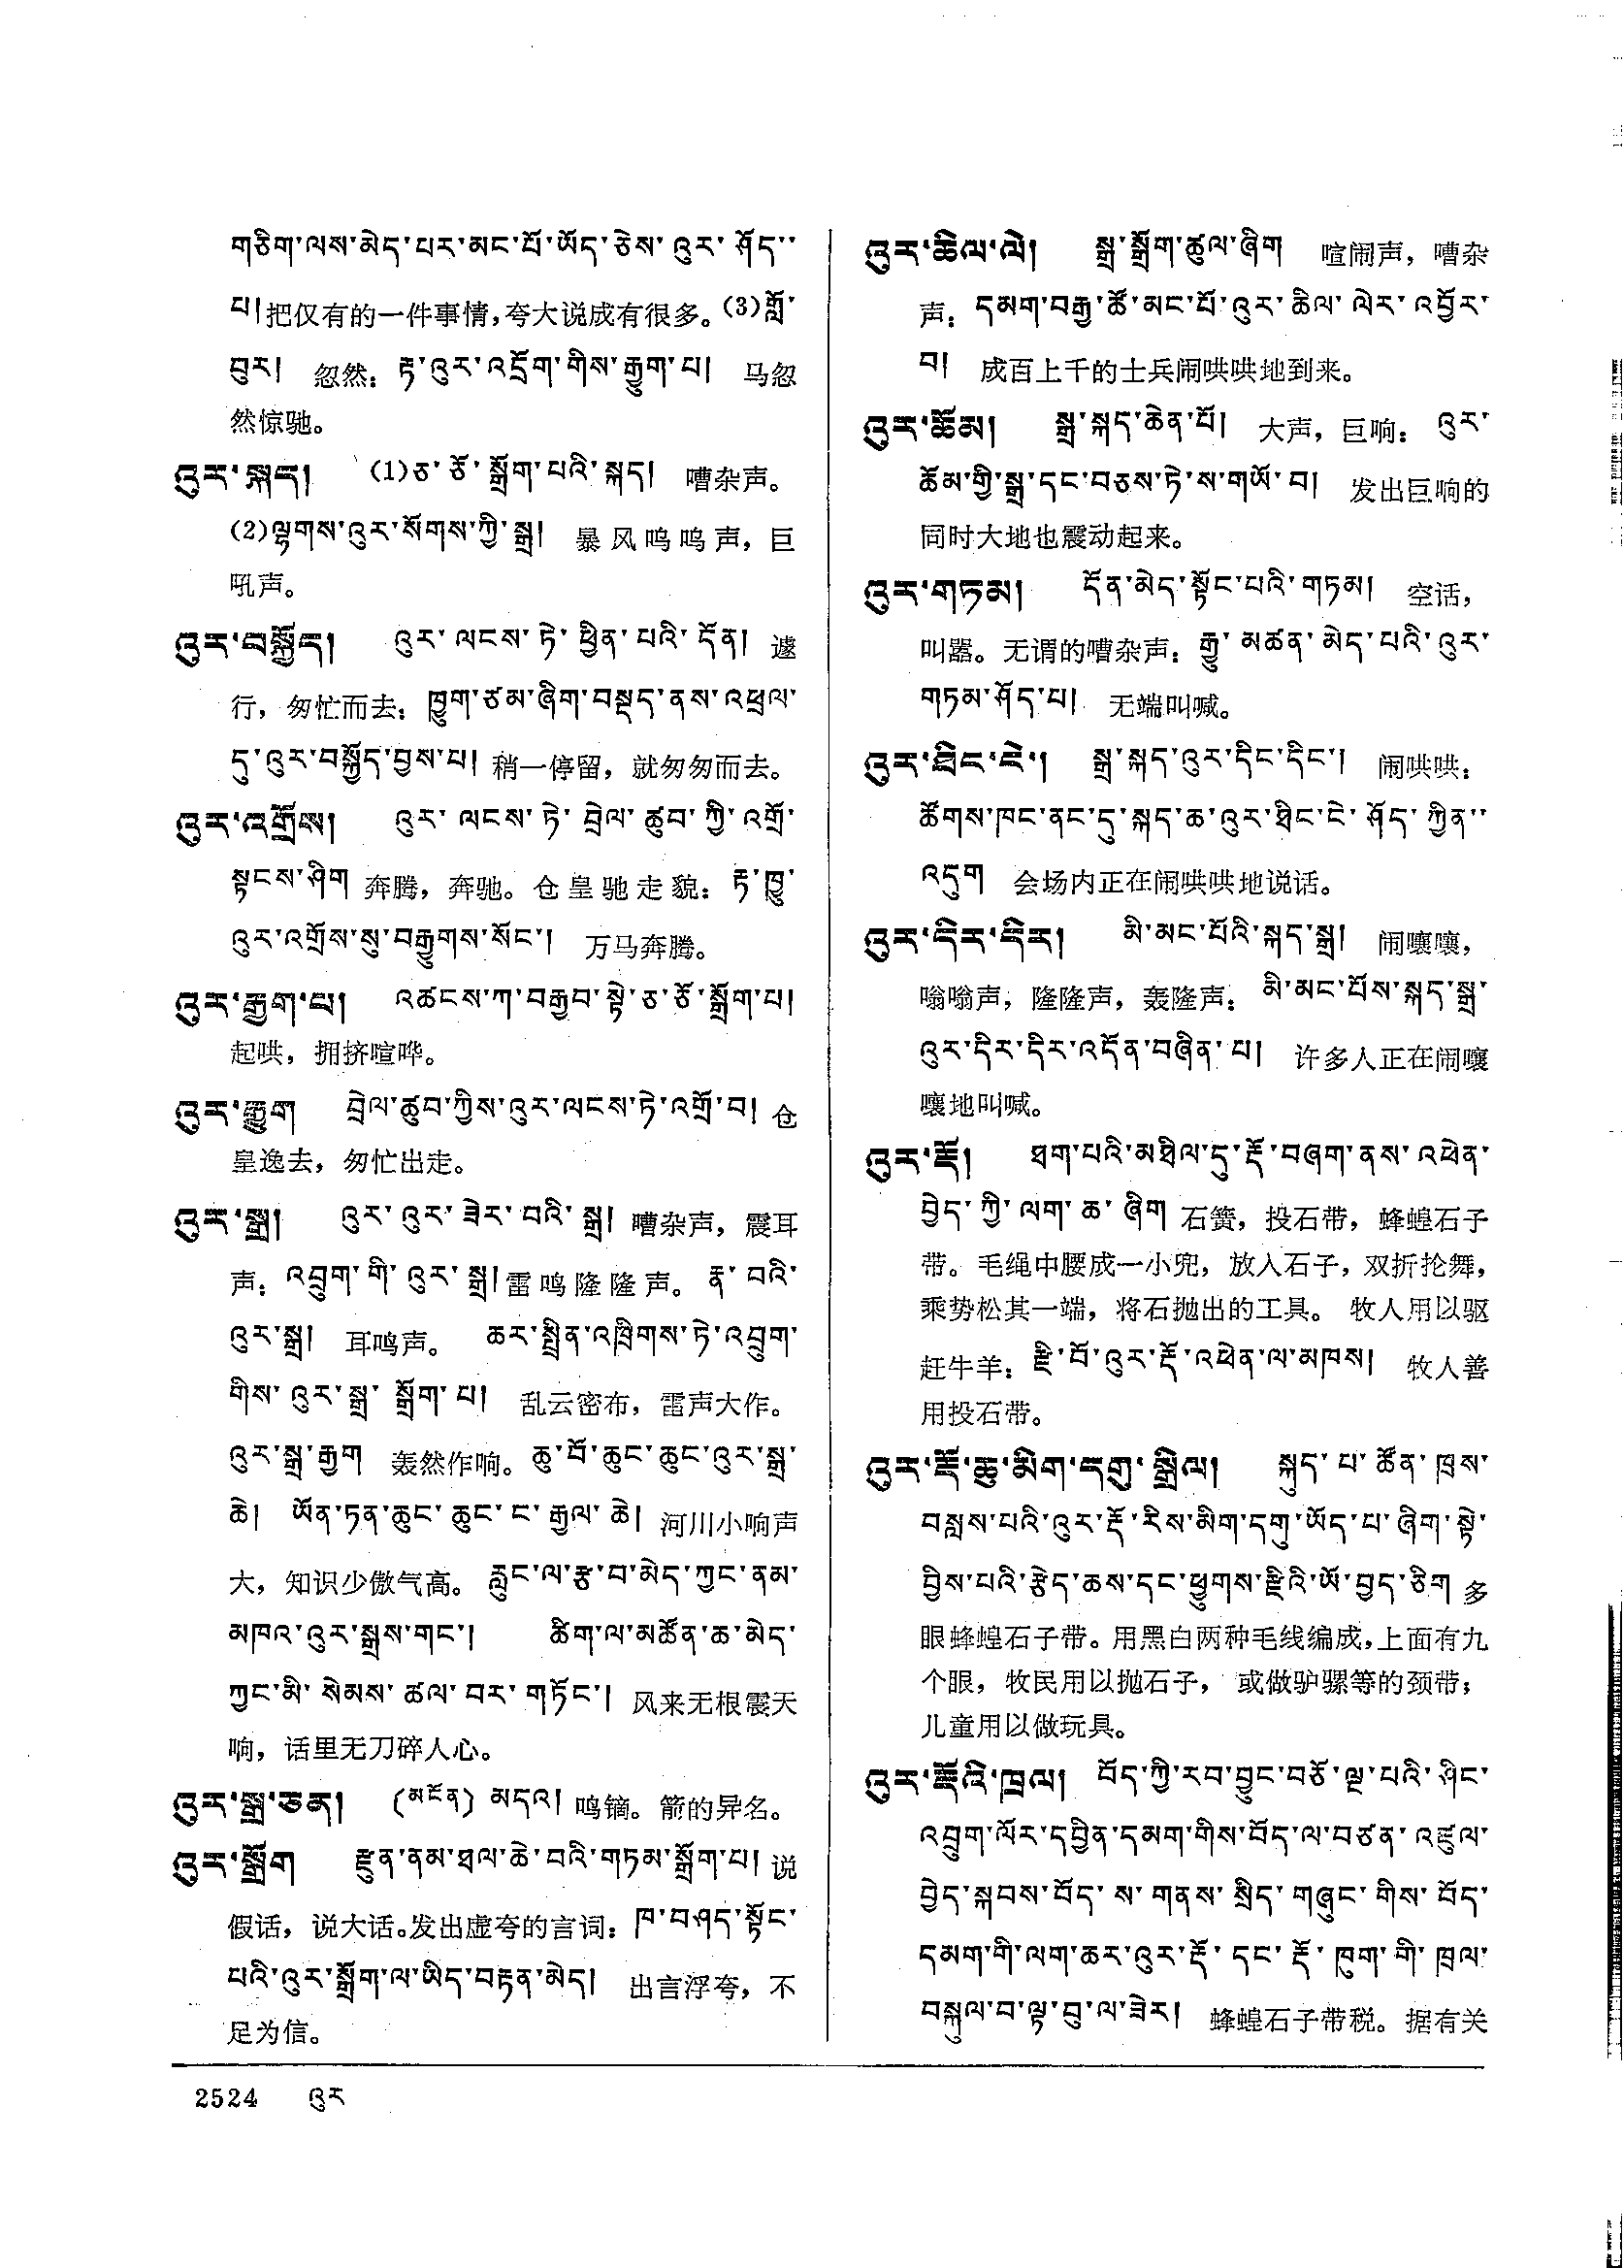 གཅིག་ལས་མེད་པར་མང་པོ་ཡོད་ཅེས་འུར་ཤོད་་
པ། 把仅有的一件事情，夸大说成有很多。(3)གློ་
བུར། 忽然：རྟ་འུར་འདྲོག་གིས་རྒྱུག་པ། 马忽
然惊驰。
འུར་སྐད། (1)ཅ་ཅོ་སྒྲོག་པའི་སྐད། 嘈杂声。
(2)ལྷགས་འུར་སོགས་ཀྱི་སྒྲ། 暴风呜呜声，巨
吼声。
འུར་བསྐྱོད། འུར་ལངས་ཏེ་ཕྱིན་པའི་དོན། 遽
行，匆忙而去：ཁྱུག་ཙམ་ཞིག་བསྡད་ནས་འཕྲལ་
དུ་འུར་བསྐྱོད་བྱས་པ། 稍一停留，就匆匆而去。
འུར་འགྲོས། འུར་ལངས་ཏེ་བྲེལ་ཚུབ་ཀྱི་འགྲོ་
སྟངས་ཤིག 奔腾，奔驰。仓皇驰走貌：རྟ་ཁྱུ་
འུར་འགྲོས་སུ་བརྒྱུགས་སོང་། 万马奔腾。
འུར་རྒྱག་པ། འཚངས་ཀ་བརྒྱབ་སྟེ་ཅ་ཅོ་སྒྲོག་པ།
起哄，拥挤喧哗。
འུར་རྒྱུག བྲེལ་ཚུབ་ཀྱིས་འུར་ལངས་ཏེ་འགྲོ་བ། 仓
皇逸去，匆忙出走。
འུར་སྒྲ། འུར་འུར་ཟེར་བའི་སྒྲ། 嘈杂声，震耳
声：འབྲུག་གི་འུར་སྒྲ། 雷鸣隆隆声。རྣ་བའི་
འུར་སྒྲ། 耳鸣声。 ཆར་སྤྲིན་འཁྲིགས་ཏེ་འབྲུག་
གིས་འུར་སྒྲ་སྒྲོག་པ། 乱云密布，雷声大作。
འུར་སྒྲ་རྒྱག 轰然作响。ཆུ་བོ་ཆུང་ཆུང་འུར་སྒྲ་
ཆེ། ཡོན་ཏན་ཆུང་ཆུང་ང་རྒྱལ་ཆེ། 河川小响声
大，知识少傲气高。རླུང་ལ་རྩ་བ་མེད་ཀྱང་ནམ་
མཁའ་འུར་སྒྲས་གང་། ཚིག་ལ་མཚོན་ཆ་མེད་
ཀྱང་མི་སེམས་ཚལ་བར་གཏོང་། 风来无根震天
响，话里无刀碎人心。
འུར་སྒྲ་ཅན། (མངོན) མདའ། 鸣镝。箭的异名。
འུར་སྒྲོག རྫུན་ནམ་ཐལ་ཆེ་བའི་གཏམ་སྒྲོག་པ། 说
假话，说大话。发出虚夸的言词：ཁ་བཤད་སྟོང་
པའི་འུར་སྒྲོག་ལ་ཡིད་བརྟན་མེད། 出言浮夸，不
足为信。
འུར་ཆིལ་ལེ། སྒྲ་སྒྲོག་ཚུལ་ཞིག 喧闹声，嘈杂
声：དམག་བརྒྱ་ཚོ་མང་པོ་འུར་ཆིལ་ལེར་འབྱོར་
བ། 成百上千的士兵闹哄哄地到来。
འུར་ཆོམ། སྒྲ་སྐད་ཆེན་པོ། 大声，巨响：འུར་
ཆོམ་གྱི་སྒྲ་དང་བཅས་ཏེ་ས་གཡོ་བ། 发出巨响的
同时大地也震动起来。
འུར་གཏམ། དོན་མེད་སྟོང་པའི་གཏམ། 空话，
叫嚣。无谓的嘈杂声：རྒྱུ་མཚན་མེད་པའི་འུར་
གཏམ་ཤོད་པ། 无端叫喊。
འུར་ཐིང་ངེ་། སྒྲ་སྐད་འུར་དིང་དིང་། 闹哄哄：
ཚོགས་ཁང་ནང་དུ་སྐད་ཆ་འུར་ཐིང་ངེ་ཤོད་ཀྱིན་་
འདུག 会场内正在闹哄哄地说话。
འུར་དིར་དིར། མི་མང་པོའི་སྐད་སྒྲ། 闹嚷嚷，
嗡嗡声，隆隆声，轰隆声：མི་མང་པོས་སྐད་སྒྲ་
འུར་དིར་དིར་འདོན་བཞིན་པ། 许多人正在闹嚷
嚷地叫喊。
འུར་རྡོ། ཐག་པའི་མཐིལ་དུ་རྡོ་བཞག་ནས་འཕེན་
བྱེད་ཀྱི་ལག་ཆ་ཞིག 石簧，投石带，蜂蝗石子
带。毛绳中腰成一小兜，放入石子，双折抡舞，
乘势松其一端，将石抛出的工具。牧人用以驱
赶牛羊：རྫི་བོ་འུར་རྡོ་འཕེན་ལ་མཁས། 牧人善
用投石带。
འུར་རྡོ་ཆུ་མིག་དགུ་སྒྲིལ། སྐུད་པ་ཚོན་ཁྲས་
བསླས་པའི་འུར་རྡོ་རིས་མིག་དགུ་ཡོད་པ་ཞིག་སྟེ་
བྱིས་པའི་རྩེད་ཆས་དང་ཕྱུགས་རྫིའི་ཡོ་བྱད་ཅིག 多
眼蜂蝗石子带。用黑白两种毛线编成，上面有九
个眼，牧民用以抛石子，或做驴骡等的颈带；
儿童用以做玩具。
འུར་རྡོའི་ཁྲལ། བོད་ཀྱི་རབ་བྱུང་བཅོ་ལྔ་པའི་ཤིང་
འབྲུག་ལོར་དབྱིན་དམག་གིས་བོད་ལ་བཙན་འཛུལ་
བྱེད་སྐབས་བོད་ས་གནས་སྲིད་གཞུང་གིས་བོད་
དམག་གི་ལག་ཆར་འུར་རྡོ་དང་རྡོ་ཁུག་གི་ཁྲལ་
བསྐུལ་བ་ལྟ་བུ་ལ་ཟེར། 蜂蝗石子带税。据有关
2524 འུར